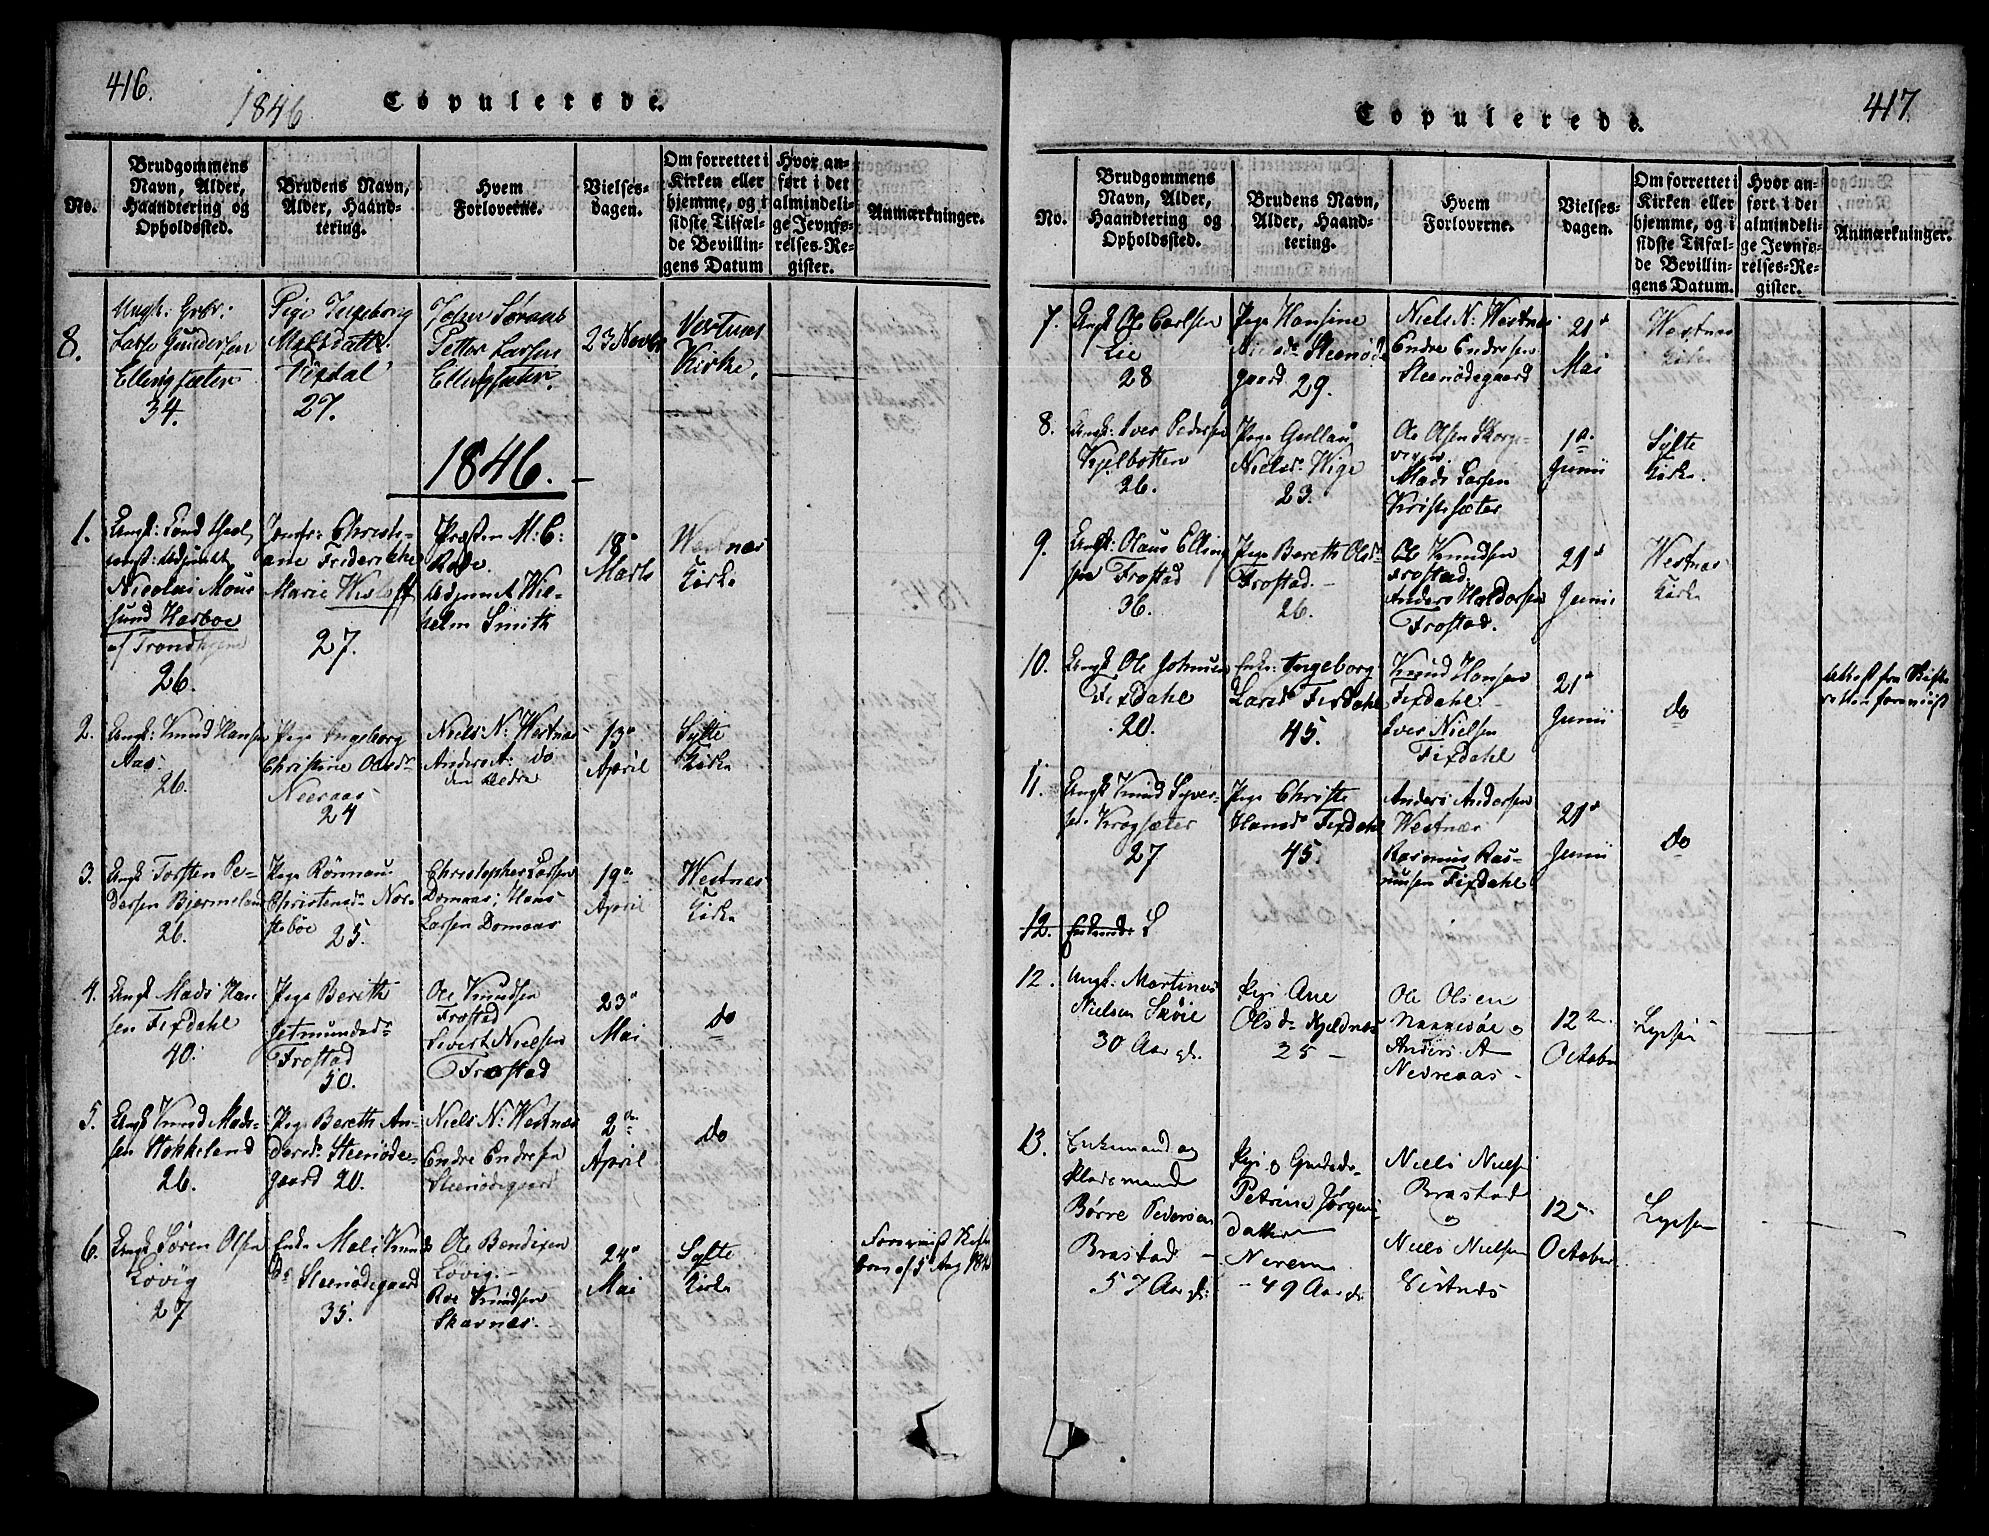 416.
1846
Copulerede.
No.
Brudgommens
Navn, Alder,
Haandtering og
Opholdssted.
Brudens Navn,
Alder, Haand-
tering.
Hvem
Forloverne.
Vielses-
dagen.
Om forrettet i
Kirken eller
hjemme, og i
sidste Tilfæl-
de Bevillin-
gens Datum
Hvor an-
ført i det
almindeli-
ge Jevnfø-
relses-Re-
gister.
Anmærkninger.
8.
Ungk:
Lasse Gundersen
Ellingsæter
34.
Pige Ingeborg
Matsdatter
Fixdal
27.
John
Petter Larsen
Ellingsæter.
23 Novbr
Vestnes
Kirke,
1846.
1.
Nicolai Mons
sund Harboe
af Trondhjem
26.
Jomfr: Christi-
ane Friderikke
Marie Wisloff
27.
Præsten M: C:
Rode.
Adjunct Wil-
helm Smith
18
Marts
Westnæs
Kirke
2.
Ungk: Knud Hansen
Aas
26.
Pige Ingeborg
Christine Olesdr
Neeraas
24
Niels N: Westnæs
Anders A: do
den Ældre
13
April
Sylte
Kirke
3.
Ungk Torsten Pe-
dersen Bjermeland
26.
Pige Rönnau
Christensdr Nor-
stebøe 25.
Christopher Larsen
Domaas; Hans
Larsen Domaas
19
April
Westnes
Kirke
4.
Ungk Mads Han
sen Fixdahl
40.
Pige Bereth
Asmundsdr
Frostad
50.
Ole Knudsen
Frostad
Sivert Nielsen
Frostad
23
Mai
do
5.
Ungk Knud Mads-
sen Stokkeland
26.
Pige Bereth An-
dersdr Steenöde-
gaard 20.
Niels N: Westnæs
Endre Endresen
Steenödegaard
2
April
do
6.
Ungk Sören Olsen
Lovig
27
Enke Mali Knuds
dr Steenödegaard
35.
Ole Bendixen
Lovig.
Roe Knudsen
Skarnæs.
24
Mai
Sylte
Kirke
417
Copulerede.
No.
Brudgommens
Navn, Alder,
Haandtering og
Opholdssted.
Brudens Navn,
Alder, Haand-
tering.
Hvem
Forloverne.
Vielses-
dagen.
Om forrettet i
Kirken eller
hjemme, og i
sidste Tilfæl-
de Bevillin-
gens Datum.
Hvor an-
ført i det
almindeli-
ge Jevnfø-
relses-Re-
gister.
Anmærkninger.
7.
Ungk Ole Carlsen
Lie
28
Pige Hansine
Nielsdr Steenöde
gaard. 29.
Niels N: Westnæs
Endre Endresen
Steenödegaard
21
Mai
Westnæs
Kirke
8.
Ungk: Iver Pedersen
Kjelbotten
26.
Pige Gullau
Nielsdr Wige
23.
Ole Olsen Skorge-
Mads Larsen
Kristisæter
1
Junii
Sylte
Kirke.
9.
Ungk: Olaus Elling
sen Frostad
36.
Pige Bereth Olsdr
Frostad.
26.
Ole Knudsen
Frostad.
Anders Haldorsen
Frostad.
21
Junii
Westnæs
Kirke
10.
Ungk Ole Johnsen
Fixdahl
20.
Enke: Ingeborg
Larsdr Fixdahl
45.
Knud Hansen
Fixdahl
Iver Nielsen
Fixdahl
21
Junii
do
11.
Ungk Knud Syver-
sen Krogsæter
27
Pige Christi
Hansdr Fixdahl
45.
Anders Andersen
Westnæs
Rasmus Ras-
mussen Fixdahl
21
Junii
do
12.
12.
Ungk. Martinus
Nielsen Skeie
30 Aar gl.
Pige Ane
Olsdr Kjeldnæs
25
Ole Olsen
og
Anders A
Nedreaas
12
October
13.
Enkemand og
Pladsmand
Børre Pedersen
Brastad
57 Aar gl:
Petrine Jørgens
datter
Neerem
49 Aar gl
Niels Nielsen
Brastad
og
Niels Nielsen
Vestnæs
12
October